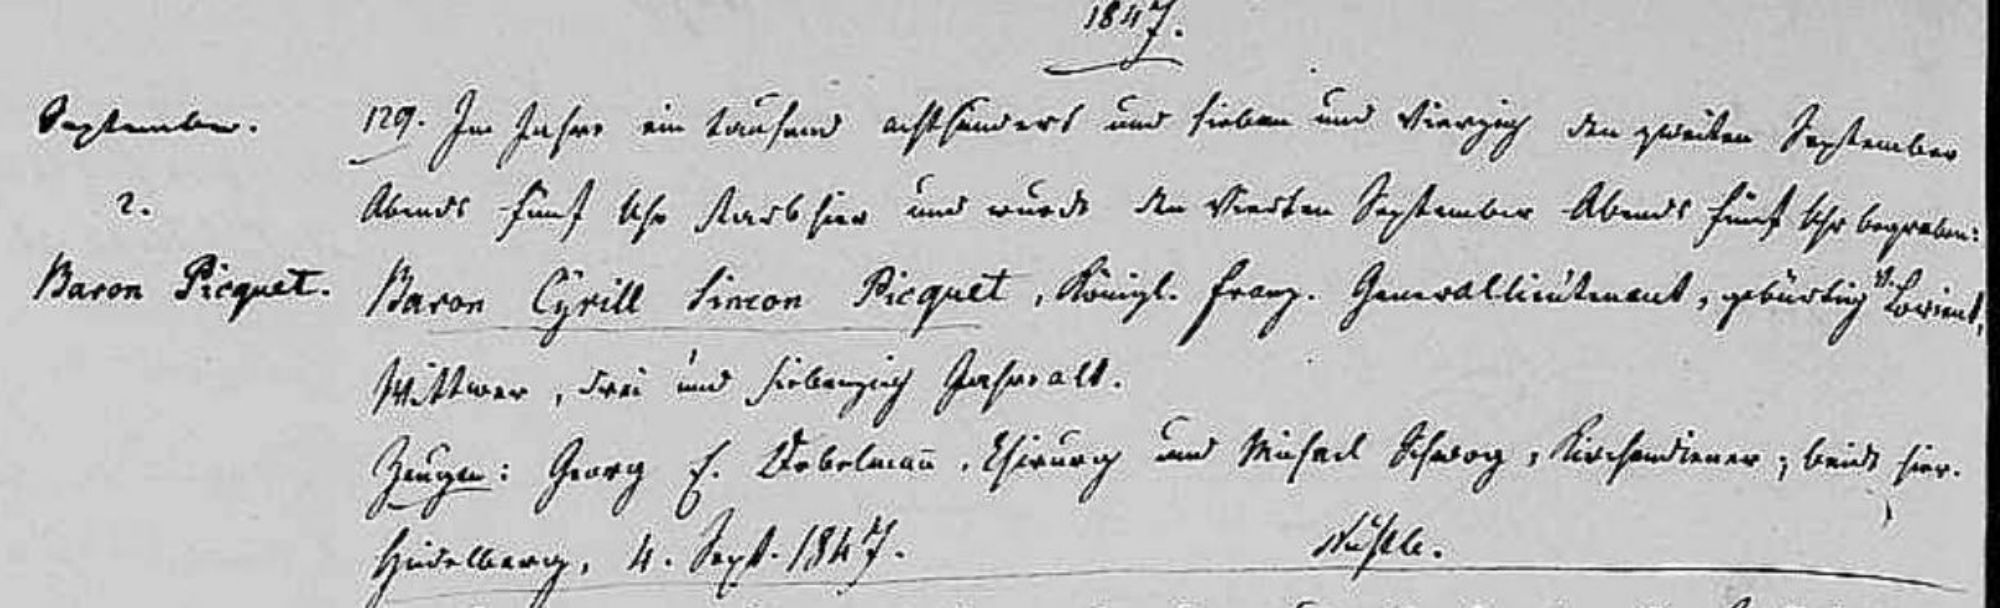 1847.
September. 129. Im Jahre ein tausend achthundert und sieben und Vierzig den zweiten September
2. Abends fünf Uhr starb hier und wurde den Vierten September Abends fünf Uhr begraben:
Baron Picquet. Baron Cÿrill Simeon Picquet, Königl. franz. Generallieutenant, gebürtig v. Lorient,
Wittwer, drei und siebenzig Jahre alt.
Zeugen: Georg F. Dobelmann̄, Chirurg und Michael Schwog, Kirchendiener; beide hier.
Heidelberg, 4. Sept. 1847.